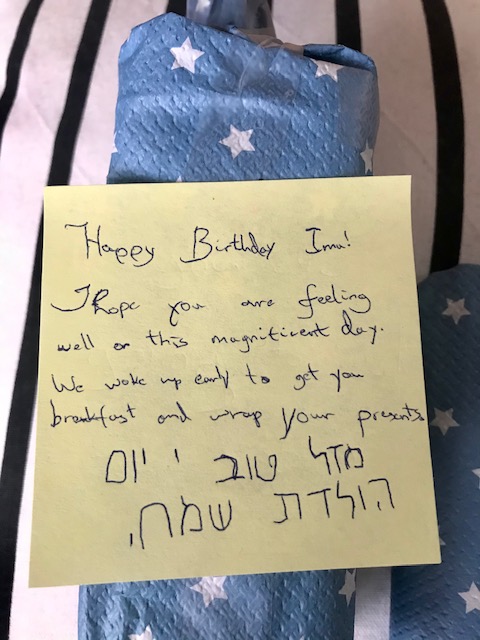 Happy Birthday Ima!
I hope you are feeling
well on this magnificent day.
We woke up early to get you
breakfast and wrap your presents.
מזל טוב י יום
הולדת שמח.